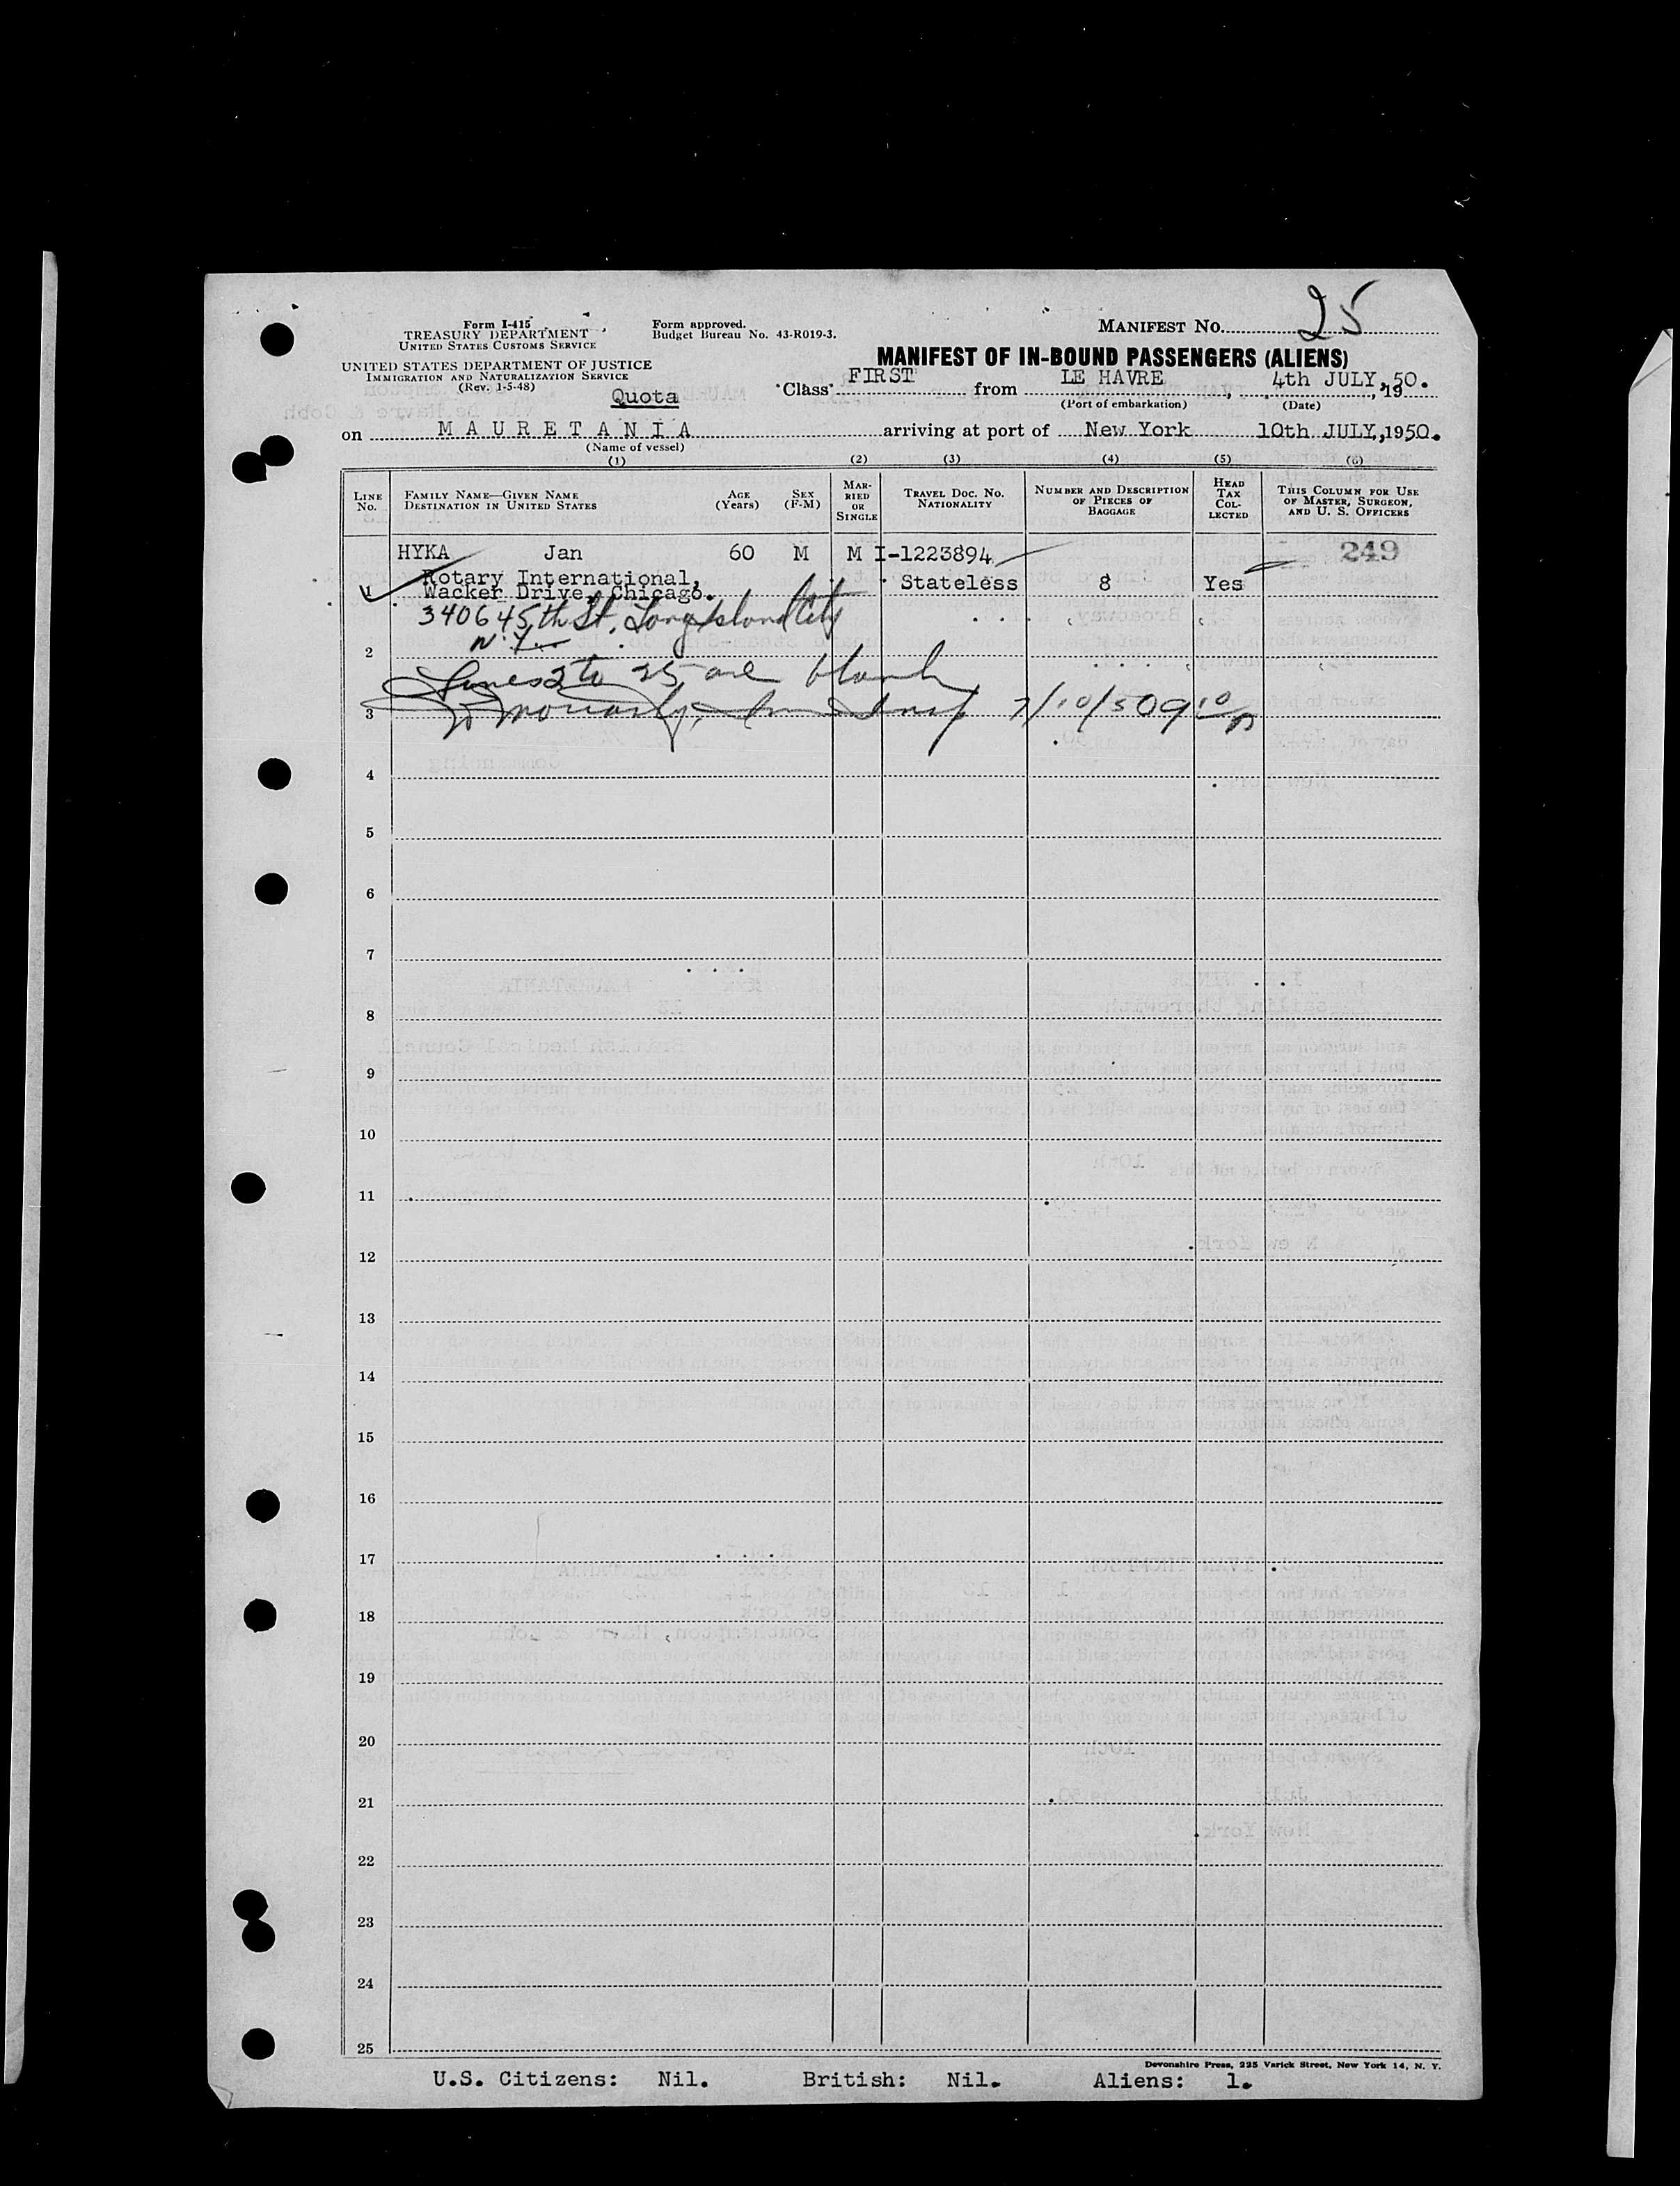 25
Form I-415
TREASURY DEPARTMENT
UNITED STATES CUSTOMS SERVICE
Form approved.
Budget Bureau No. 43-R019-3.
MANIFEST NO.
UNITED STATES DEPARTMENT OF JUSTICE
IMMIGRATION AND NATURALIZATION SERVICE
(Rev. 1-5-48)
MANIFEST OF IN-BOUND PASSENGERS (ALIENS)
Quota
Class FIRST from LE HAVRE, 4th JULY, 1950.
(Port of embarkation) (Date)
on MAURETANIA arriving at port of New York 10th JULY, 1950.
(Name of vessel)
(1) (2) (3) (4) (5) (6)
LINE No. FAMILY NAME—GIVEN NAME DESTINATION IN UNITED STATES AGE (Years) SEX (F-M) MARRIED OR SINGLE TRAVEL DOC. NO. NATIONALITY NUMBER AND DESCRIPTION OF PIECES OF BAGGAGE HEAD TAX COLLECTED THIS COLUMN FOR USE OF MASTER, SURGEON, AND U. S. OFFICERS
HYKA Jan 60 M M I-1223894 249
Rotary International, Stateless 8 Yes
1 Wacker Drive, Chicago.
3406 45th St, Long Island City
N.Y.
2
Lines 2 to 25 are blank
3 Moriarty, Imm Insp 7/10/50 9 10/
4
5
6
7
8
9
10
11
12
13
14
15
16
17
18
19
20
21
22
23
24
25
Devonshire Press, 225 Varick Street, New York 14, N. Y.
U.S. Citizens: Nil. British: Nil. Aliens: 1.